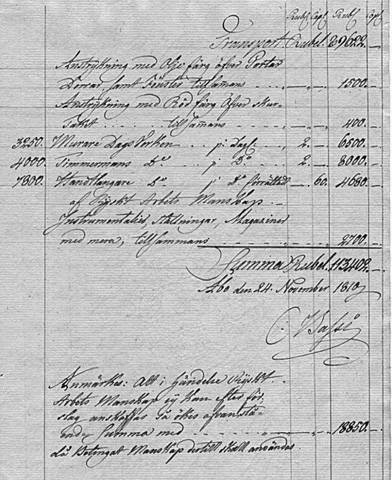 Rubl. Cop. Rubl. Cop.
Transport Rubel 89622.
Anstrykning med Olje färg öfver Portar
Dörrar samt Fönster tillsamans 1500.
Anstrykning med Röd färg öfver
Taket tillsamans 400.
3250. Murare Dags Verken på Dagl. 2. 6500.
4000. Timmermans D:o på D:o 2. 8000.
7800. Handtlangare D:o på D:o 60. 4680.
af Ryskt Arbets Manskap
Instrumentalier, Ställningar, Magasiner
med mera, tillsammans 2700.
Summa Rubel 113,402.
Åbo den 24. November 1810
C. Bassi
Anmärkes: Att i händelse Ryskt
Arbets Manskap ej kan efter för,
slag anskaffas så ökes ofvanstå,
ende Summa med 18850.
då betingat Manskap dertill skall användas.